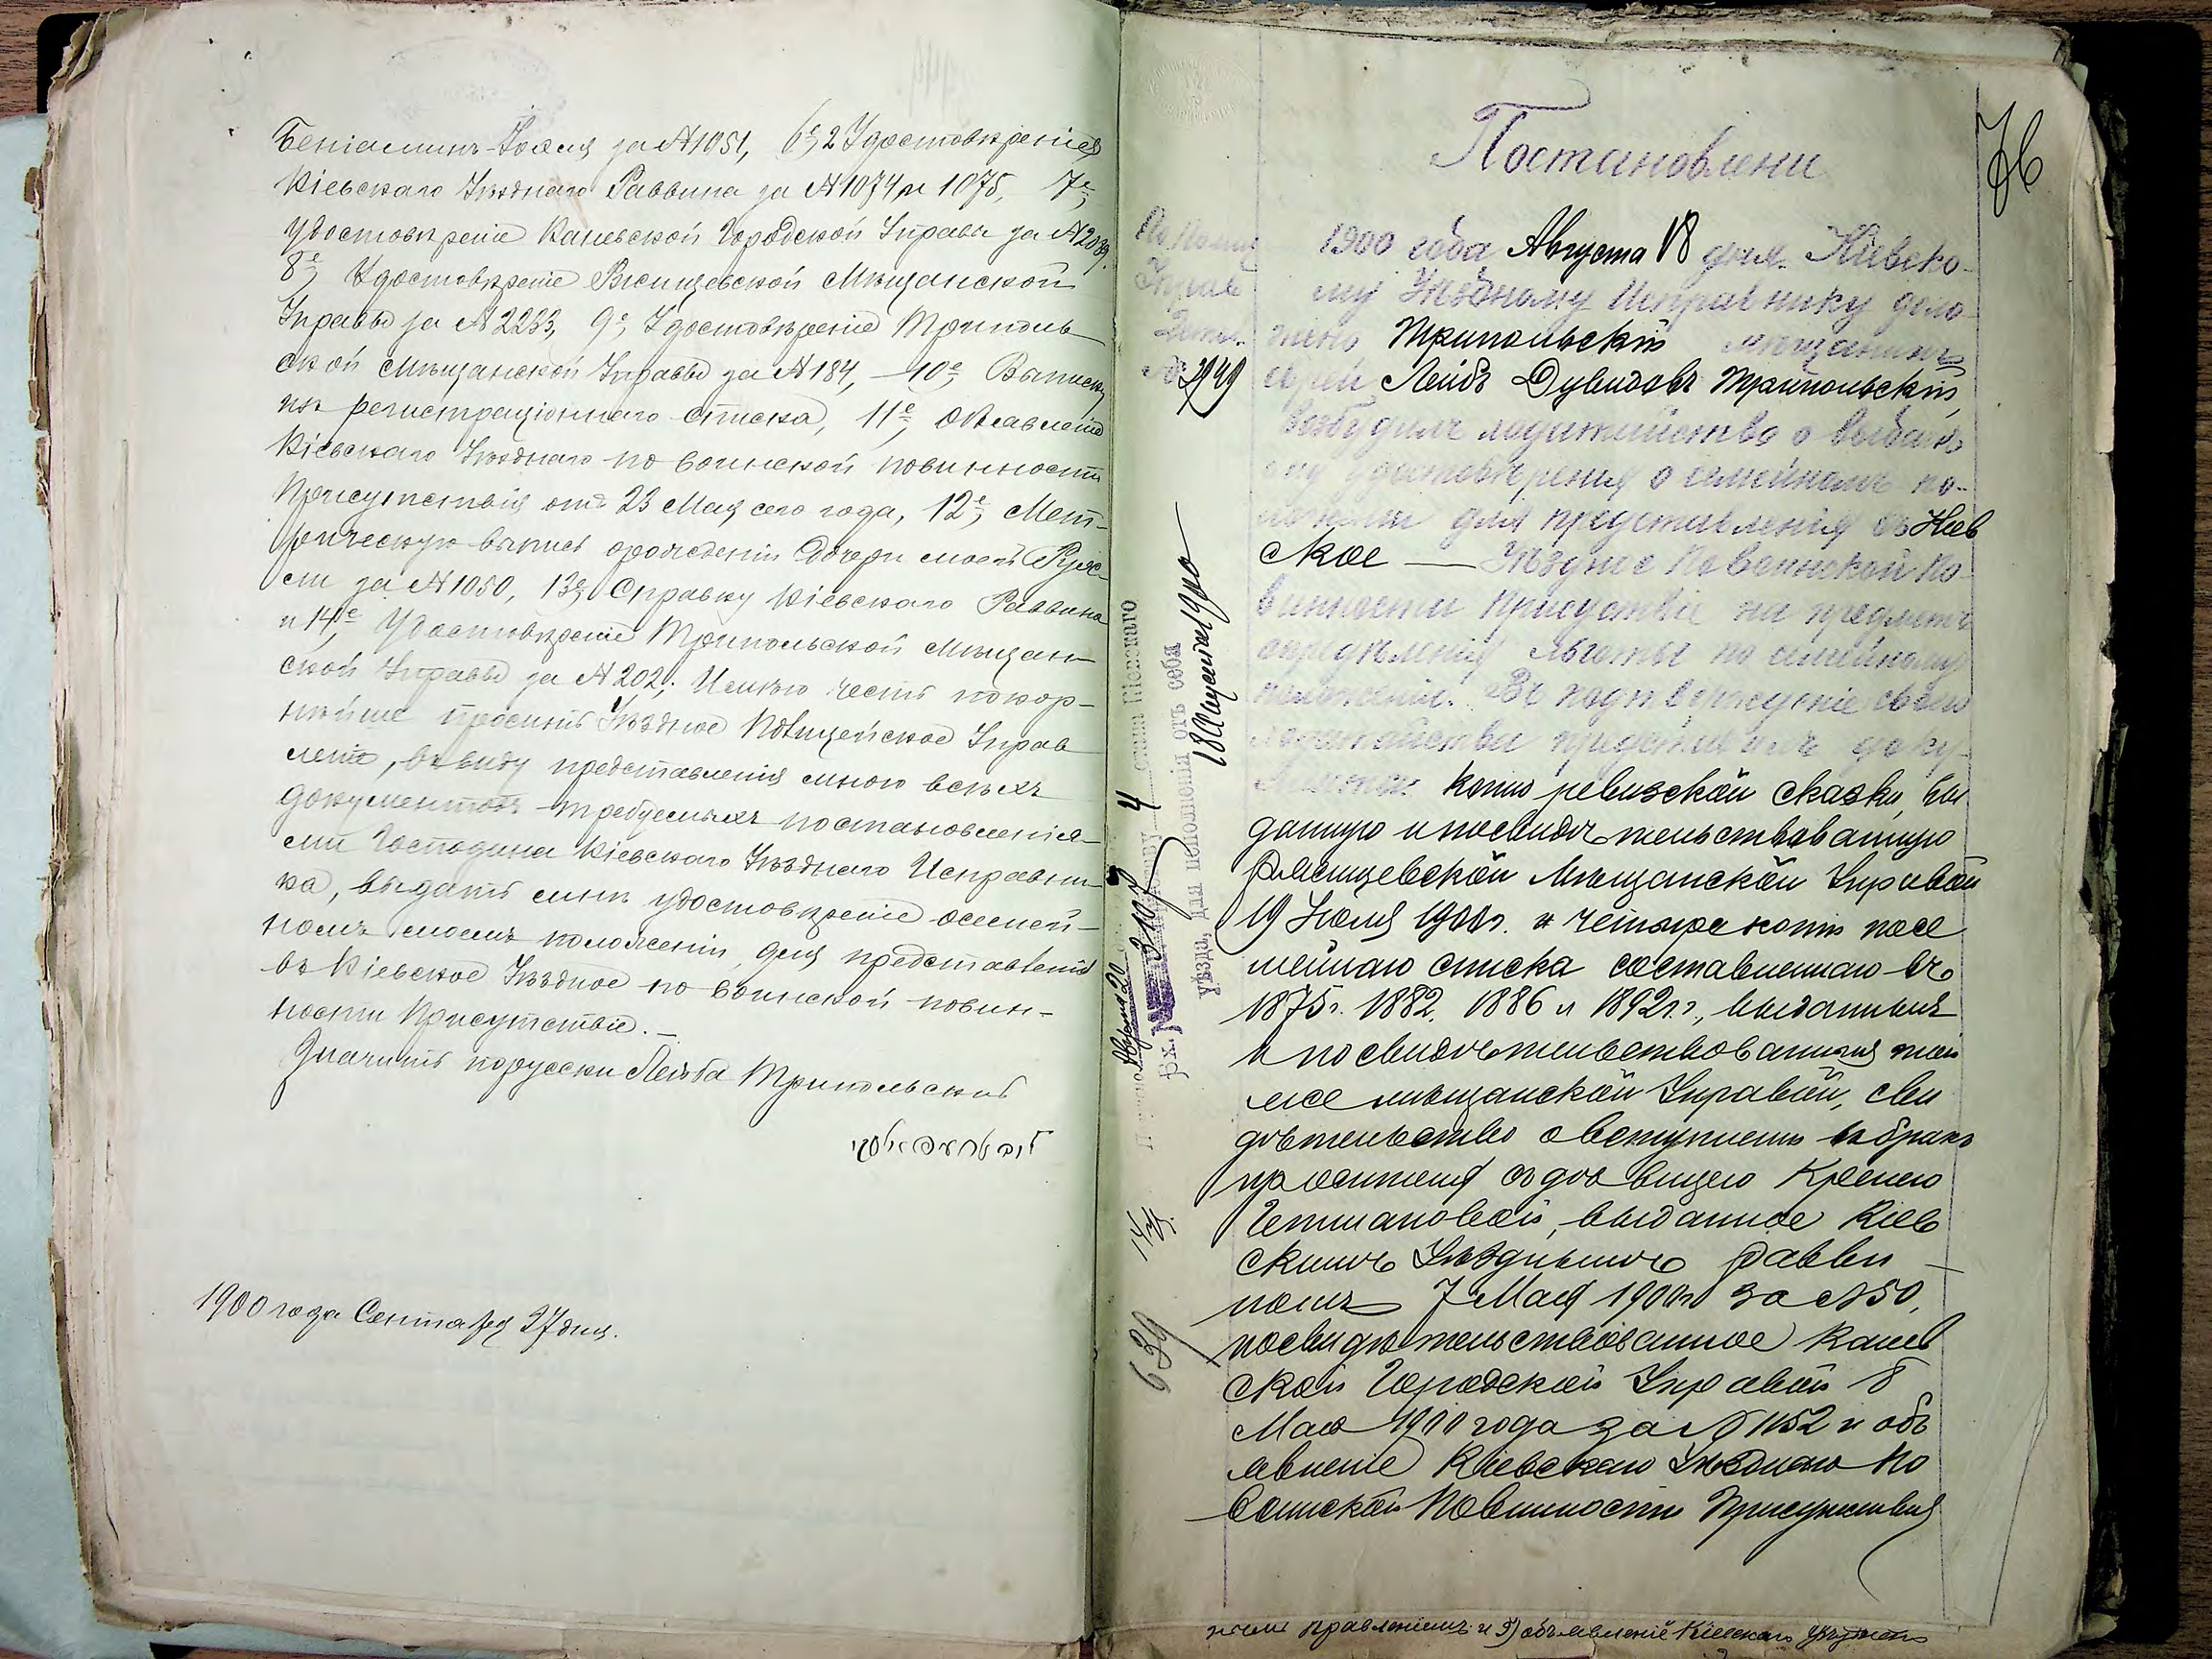 Бенiаминъ-Іоеля за №1051, 6е, 2 Удостовѣренiя
Кiевскаго Уѣзднаго Раввина за №1074 и 1075, 7е,
Удостовѣренiе Каневской Городской Управы за №2039,
8е, Удостовѣренiе Ржищевской Мѣщанской
Управы за №2233, 9е, Удостовѣренiе Триполь-
ской Мѣщанской Управы за №184, - 10е, Выписку
изъ регистрацiоннаго списка, 11е, Объявленiе
Кiевскаго Уѣзднаго по воинской повинности
Присутствiя отъ 23 Мая сего года, 12е, Мет-
рическую выпись о рожденiи дочери моей
за №1050, 13е, Справку Кiевскаго Раввина
и 14е, Удостовѣренiе Трипольской Мѣщан-
ской Управы за №202; Имѣю честь покор-
нѣйше просить Уѣздное Полицейское Управ
ленiе, въ виду представленiя мною всѣхъ
документовъ требуемыхъ постановленiя-
ми Господина Кiевскаго Уѣзднаго Исправни-
ка, выдать мнѣ удостовѣренiе о семей-
номъ моемъ положенiи, для представленiя
въ Кiевское Уѣздное по воинской повин-
ности Присутствiе. -
Значитъ по русски Лейба Трипольскiй
1900 года Сентября 27 дня.
76
Постановлени
1900 года Августа 18 дня. Кiевско-
му Уѣздному Исправнику доло-
жено Трипольскiй мѣщанинъ
еврей Лейбъ Дувидовъ Трипольскiй,
возбудилъ ходатайство о выдачѣ
ему удостовѣренiя о семейномъ по-
ложенiи для представленiя въ Кiев
ское — Уѣздное по воинской по-
винности Присутствiе на предметъ
опредѣленiя льготы по семейному
положенiю. Въ подтвержденiе своего
ходатайства представилъ доку-
менты: копiю ревизской сказки, вы
данную и посвидѣтельствованную
Ржищевской Мѣщанской Управой
19 Iюля 1900г. и четыре копiи посе
мейнаго списка составленнаго въ
1875г. 1882, 1886 и 1892г.г., выданныя
и посвидѣтельствованныя той
же мѣщанской Управой, сви
дѣтельство о вступленiи въ бракъ
просителя съ дѣвицею
выданное Кiев
скимъ Уѣзднымъ равви
номъ 7 Мая 1900г за №50,
посвидѣтельствованное Канев
ской Городской Управой 8
Мая 1900 года за №1152 и объ
явленiе Кiевскаго Уѣзднаго по
воинской повинности Присутствiя
№ 2949
18 Августа 1900
уѣзда, для исполненiя отъ себя
Августа 20
3107
639
правленiемъ и 5) объявленiе Кiевскаго